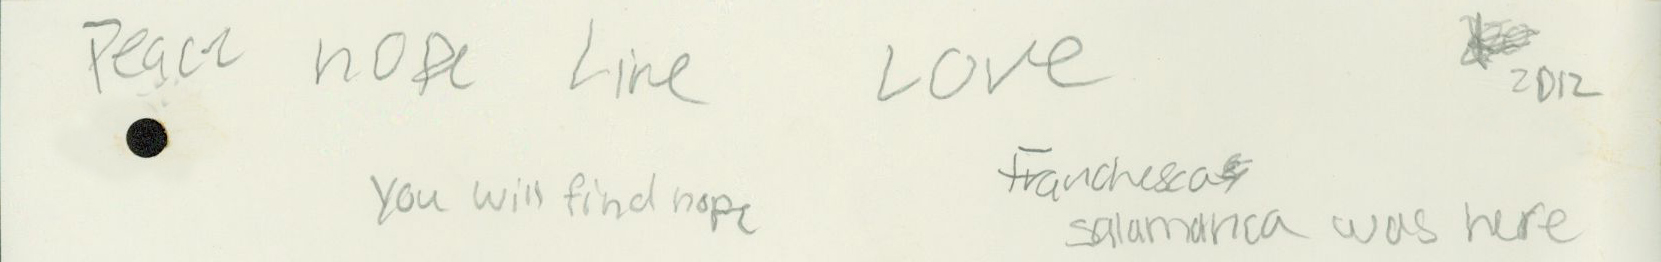 Peace hope Line Love
2012
You will find hope
Franchesca
salamanca was here